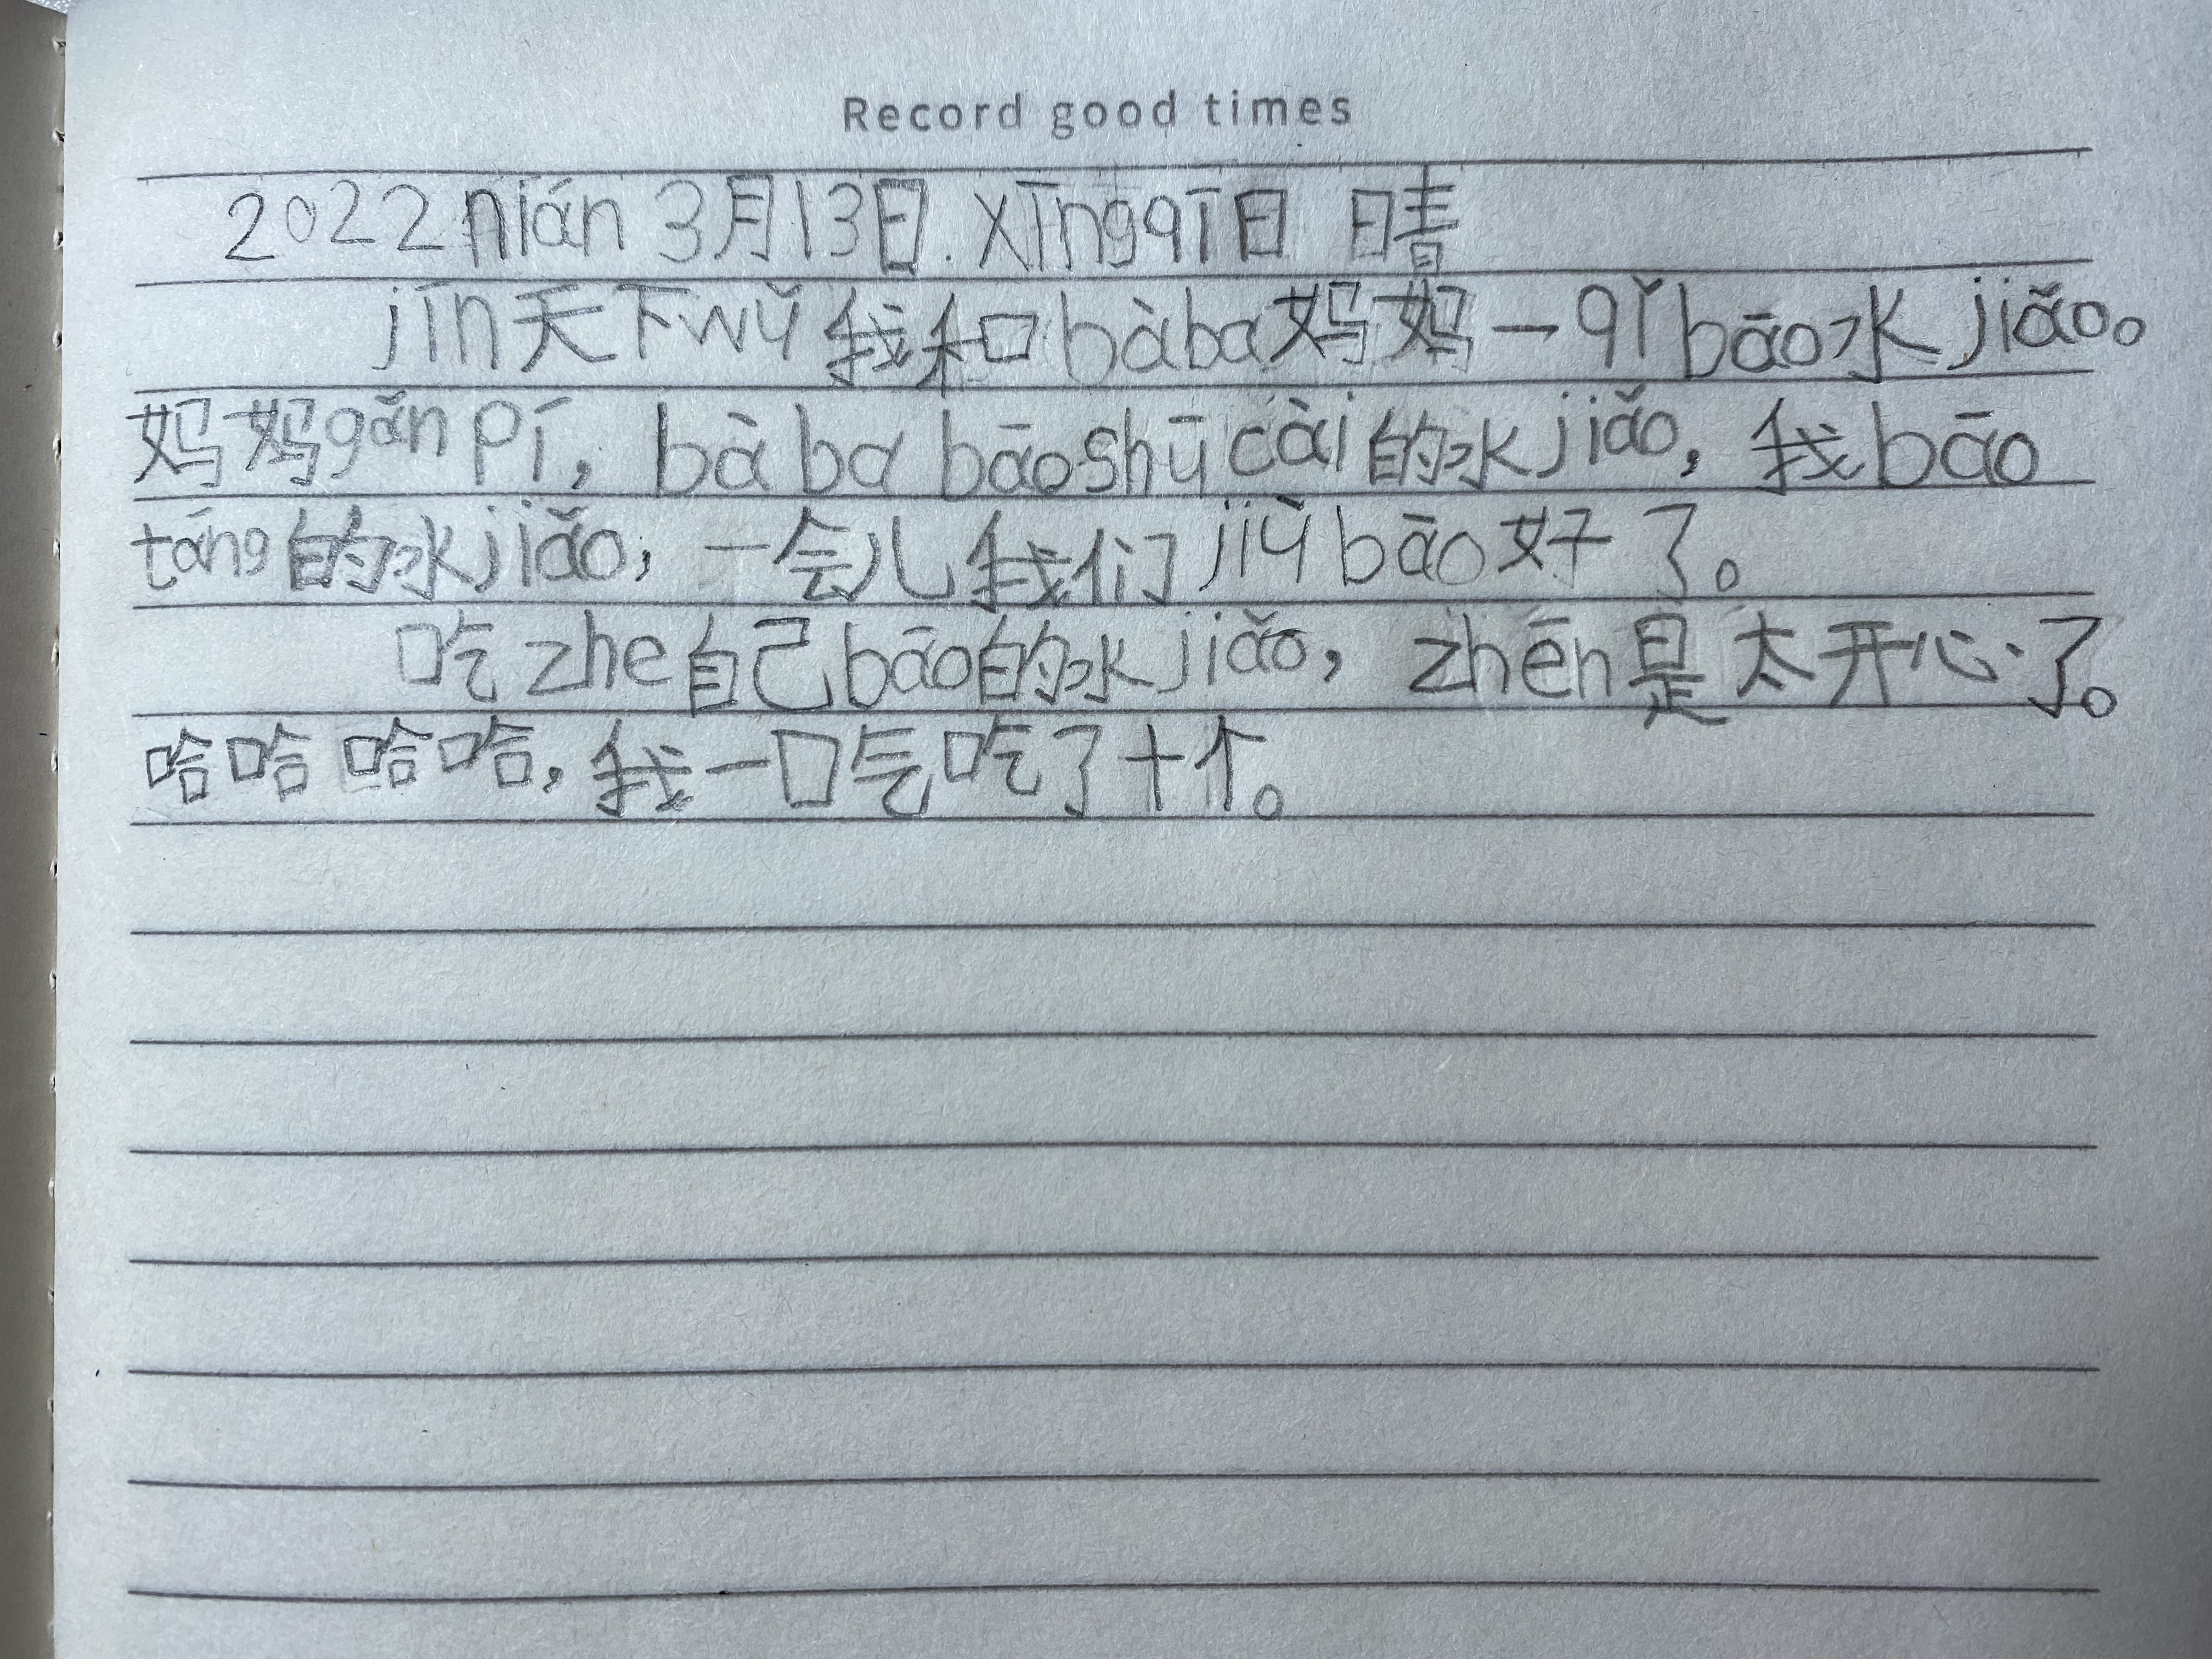 Record good times
2022 nián 3月13日. xīngqī日 晴
jīn天下wǔ我和bàba妈妈一qǐbāo水jiǎo。
妈妈gǎn pí，bàba bāoshūcài的水jiǎo，我bāo
táng的水jiǎo，一会儿我们jiùbāo好了。
吃zhe自己bāo的水jiǎo，zhēn是太开心了。
哈哈哈哈，我一口气吃了十个。